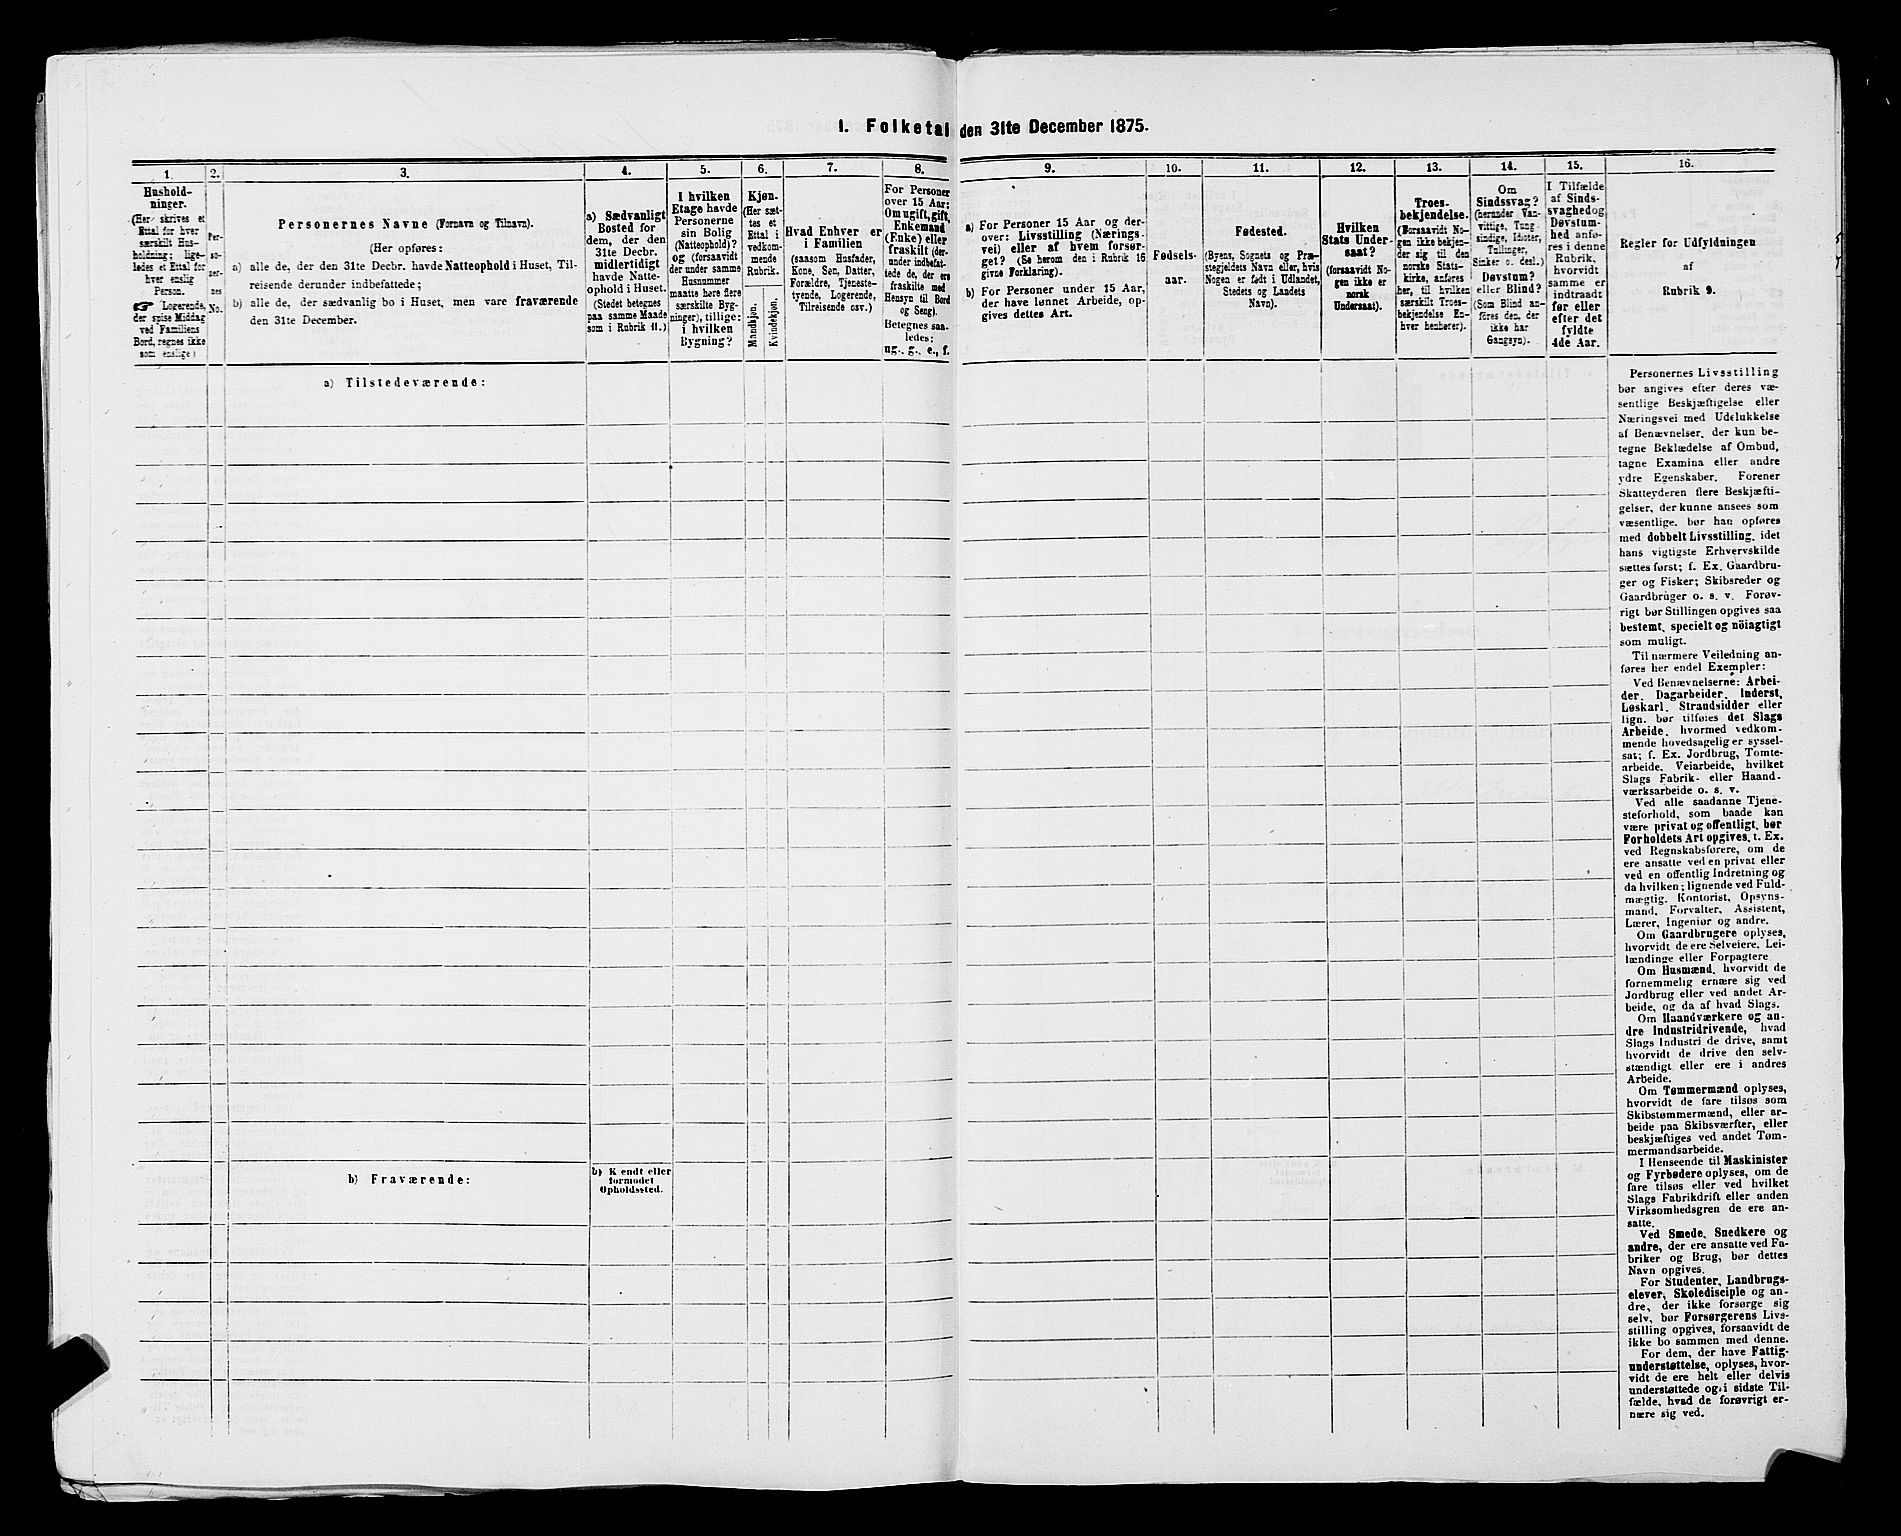 I. Folketal den 31te December 1875.
1.
Hushold-
ninger.
(Her skrives et
Ettal for hver
særskilt Hus-
holdning; lige-
ledes et Ettal for
hver enslig
Person.
☞ Logerende,
der spise Middag
ved Familiens
Bord, regnes ikke
som enslige)
2.
Per-
so-
ner-
nes
No.
3.
Personernes Navne (Fornavn og Tilnavn).
(Her opføres:
a) alle de, der den 31te Decbr. havde Natteophold i Huset, Til-
reisende derunder indbefattede;
b) alle de, der sædvanlig bo i Huset, men vare fraværende
den 31te December.
4.
a) Sædvanligt
Bosted for
dem, der den
31te Decbr.
midlertidigt
havde Natte-
ophold i Huset.
(Stedet betegnes
paa samme Maade
som i Rubrik 11.)
5.
I hvilken
Etage havde
Personerne
sin Bolig
(Natteophold)?
og (forsaavidt
der under samme
Husnummer
maatte høre flere
særskilte Byg-
ninger), tillige:
i hvilken
Bygning?
6.
Kjøn.
(Her sæt-
tes et
Ettal i
vedkom-
mende
Rubrik.
Mandkjøn.
Kvindekjøn.
7.
Hvad Enhver er
i Familien
(saasom Husfader,
Kone, Søn, Datter,
Forældre, Tjeneste-
tyende, Logerende,
Tilreisende osv.)
8.
For Personer
over 15 Aar:
Om ugift, gift,
Enkemand
(Enke) eller
fraskilt (der-
under indbefat-
tede de, der ere
fraskilte med
Hensyn til Bord
og Seng).
Betegnes saa-
ledes:
ug., g., e., f.
9.
a) For Personer 15 Aar og der-
over: Livsstilling (Nærings-
vei) eller af hvem forsør-
get? (Se herom den i Rubrik 16
givne Forklaring).
b) For Personer under 15 Aar,
der have lønnet Arbeide, op-
gives dettes Art.
10.
Fødsels-
aar.
11.
Fødested.
(Byens, Sognets og Præ-
stegjeldets Navn eller, hvis
Nogen er født i Udlandet,
Stedets og Landets
Navn).
12.
Hvilken
Stats Under-
saat?
(forsaavidt No-
gen ikke er
norsk
Undersaat).
13.
Troes-
bekjendelse.
(Forsaavidt No-
gen ikke bekjen-
der sig til den
norske Stats-
kirke, anføres
her, til hvilken
særskilt Troes-
bekjendelse En-
hver henhører).
14.
Om
Sindssvag?
(herunder Van-
vittige, Tung-
sindige, Idioter,
Tullinger,
Sinker o. desl.)
Døvstum?
eller Blind?
(Som Blind an-
føres den, der
ikke har
Gangsyn).
15.
I Tilfælde
af Sinds-
svaghed og
Døvstum-
hed anfø-
res i denne
Rubrik,
hvorvidt
samme er
indtraadt
før eller
efter det
fyldte
4de Aar.
16.
Regler for Udfyldningen
af
Rubrik 9.
a) Tilstedeværende:
b) Fraværende:
b) Kendt eller
formodet
Opholdssted.
Personernes Livsstilling
bør angives efter deres væ-
sentlige Beskjæftigelse eller
Næringsvei med Udelukkelse
af Benævnelser, der kun be-
tegne Beklædelse af Ombud,
tagne Examina eller andre
ydre Egenskaber. Forener
Skatteyderen flere Beskjæfti-
gelser, der kunne ansees som
væsentlige, bør han opføres
med dobbelt Livsstilling, idet
hans vigtigste Erhvervskilde
sættes først; f. Ex. Gaardbru-
ger og Fisker; Skibsreder og
Gaardbruger o. s. v. Forøv-
rigt bør Stillingen opgives saa
bestemt, specielt og nöiagtigt
som muligt.
Til nærmere Veiledning an-
føres her endel Exempler:
Ved Benævnelserne: Arbei-
der, Dagarbeider, Inderst,
Løskarl, Strandsidder eller
lign. bør tilføies det Slags
Arbeide, hvormed vedkom-
mende hovedsagelig er syssel-
sat; f. Ex. Jordbrug, Tomte-
arbeide, Veiarbeide, hvilket
Slags Fabrik- eller Haand-
værksarbeide o. s. v.
Ved alle saadanne Tjene-
steforhold, som baade kan
være privat og offentligt, bør
Forholdets Art opgives, t. Ex.
ved Regnskabsførere, om de
ere ansatte ved en privat eller
ved en offentlig Indretning og
da hvilken; lignende ved Fuld-
mægtig, Kontorist, Opsyns-
mand, Forvalter, Assistent,
Lærer, Ingeniør og andre.
Om Gaardbrugere oplyses,
hvorvidt de ere Selveiere, Lei-
lændinge eller Forpagtere
Om Husmænd, hvorvidt de
fornemmelig ernære sig ved
Jordbrug eller ved andet Ar-
beide, og da af hvad Slags.
Om Haandværkere og an-
dre Industridrivende, hvad
Slags Industri de drive, samt
hvorvidt de drive den selv-
stændigt eller ere i andres
Arbeide.
Om Tømmermænd oplyses,
hvorvidt de fare tilsøs som
Skibstømmermænd, eller ar-
beide paa Skibsværfter, eller
beskjæftiges ved andet Tøm-
mermandsarbeide.
I Henseende til Maskinister
og Fyrbødere oplyses, om de
fare tilsøs eller ved hvilket
Slags Fabrikdrift eller anden
Virksomhedsgren de ere an-
satte.
Ved Smede, Snedkere og
andre, der ere ansatte ved Fa-
briker og Brug, bør dettes
Navn opgives.
For Studenter, Landbrugs-
elever, Skoledisciple og an-
dre, der ikke forsørge sig
selv, bør Forsørgerens Livs-
stilling opgives, forsaavidt de
ikke bo sammen med denne.
For dem, der have Fattig-
understøttelse, oplyses, hvor-
vidt de ere helt eller delvis
understøttede og i sidste Til-
fælde, hvad de forøvrigt er-
nære sig ved.